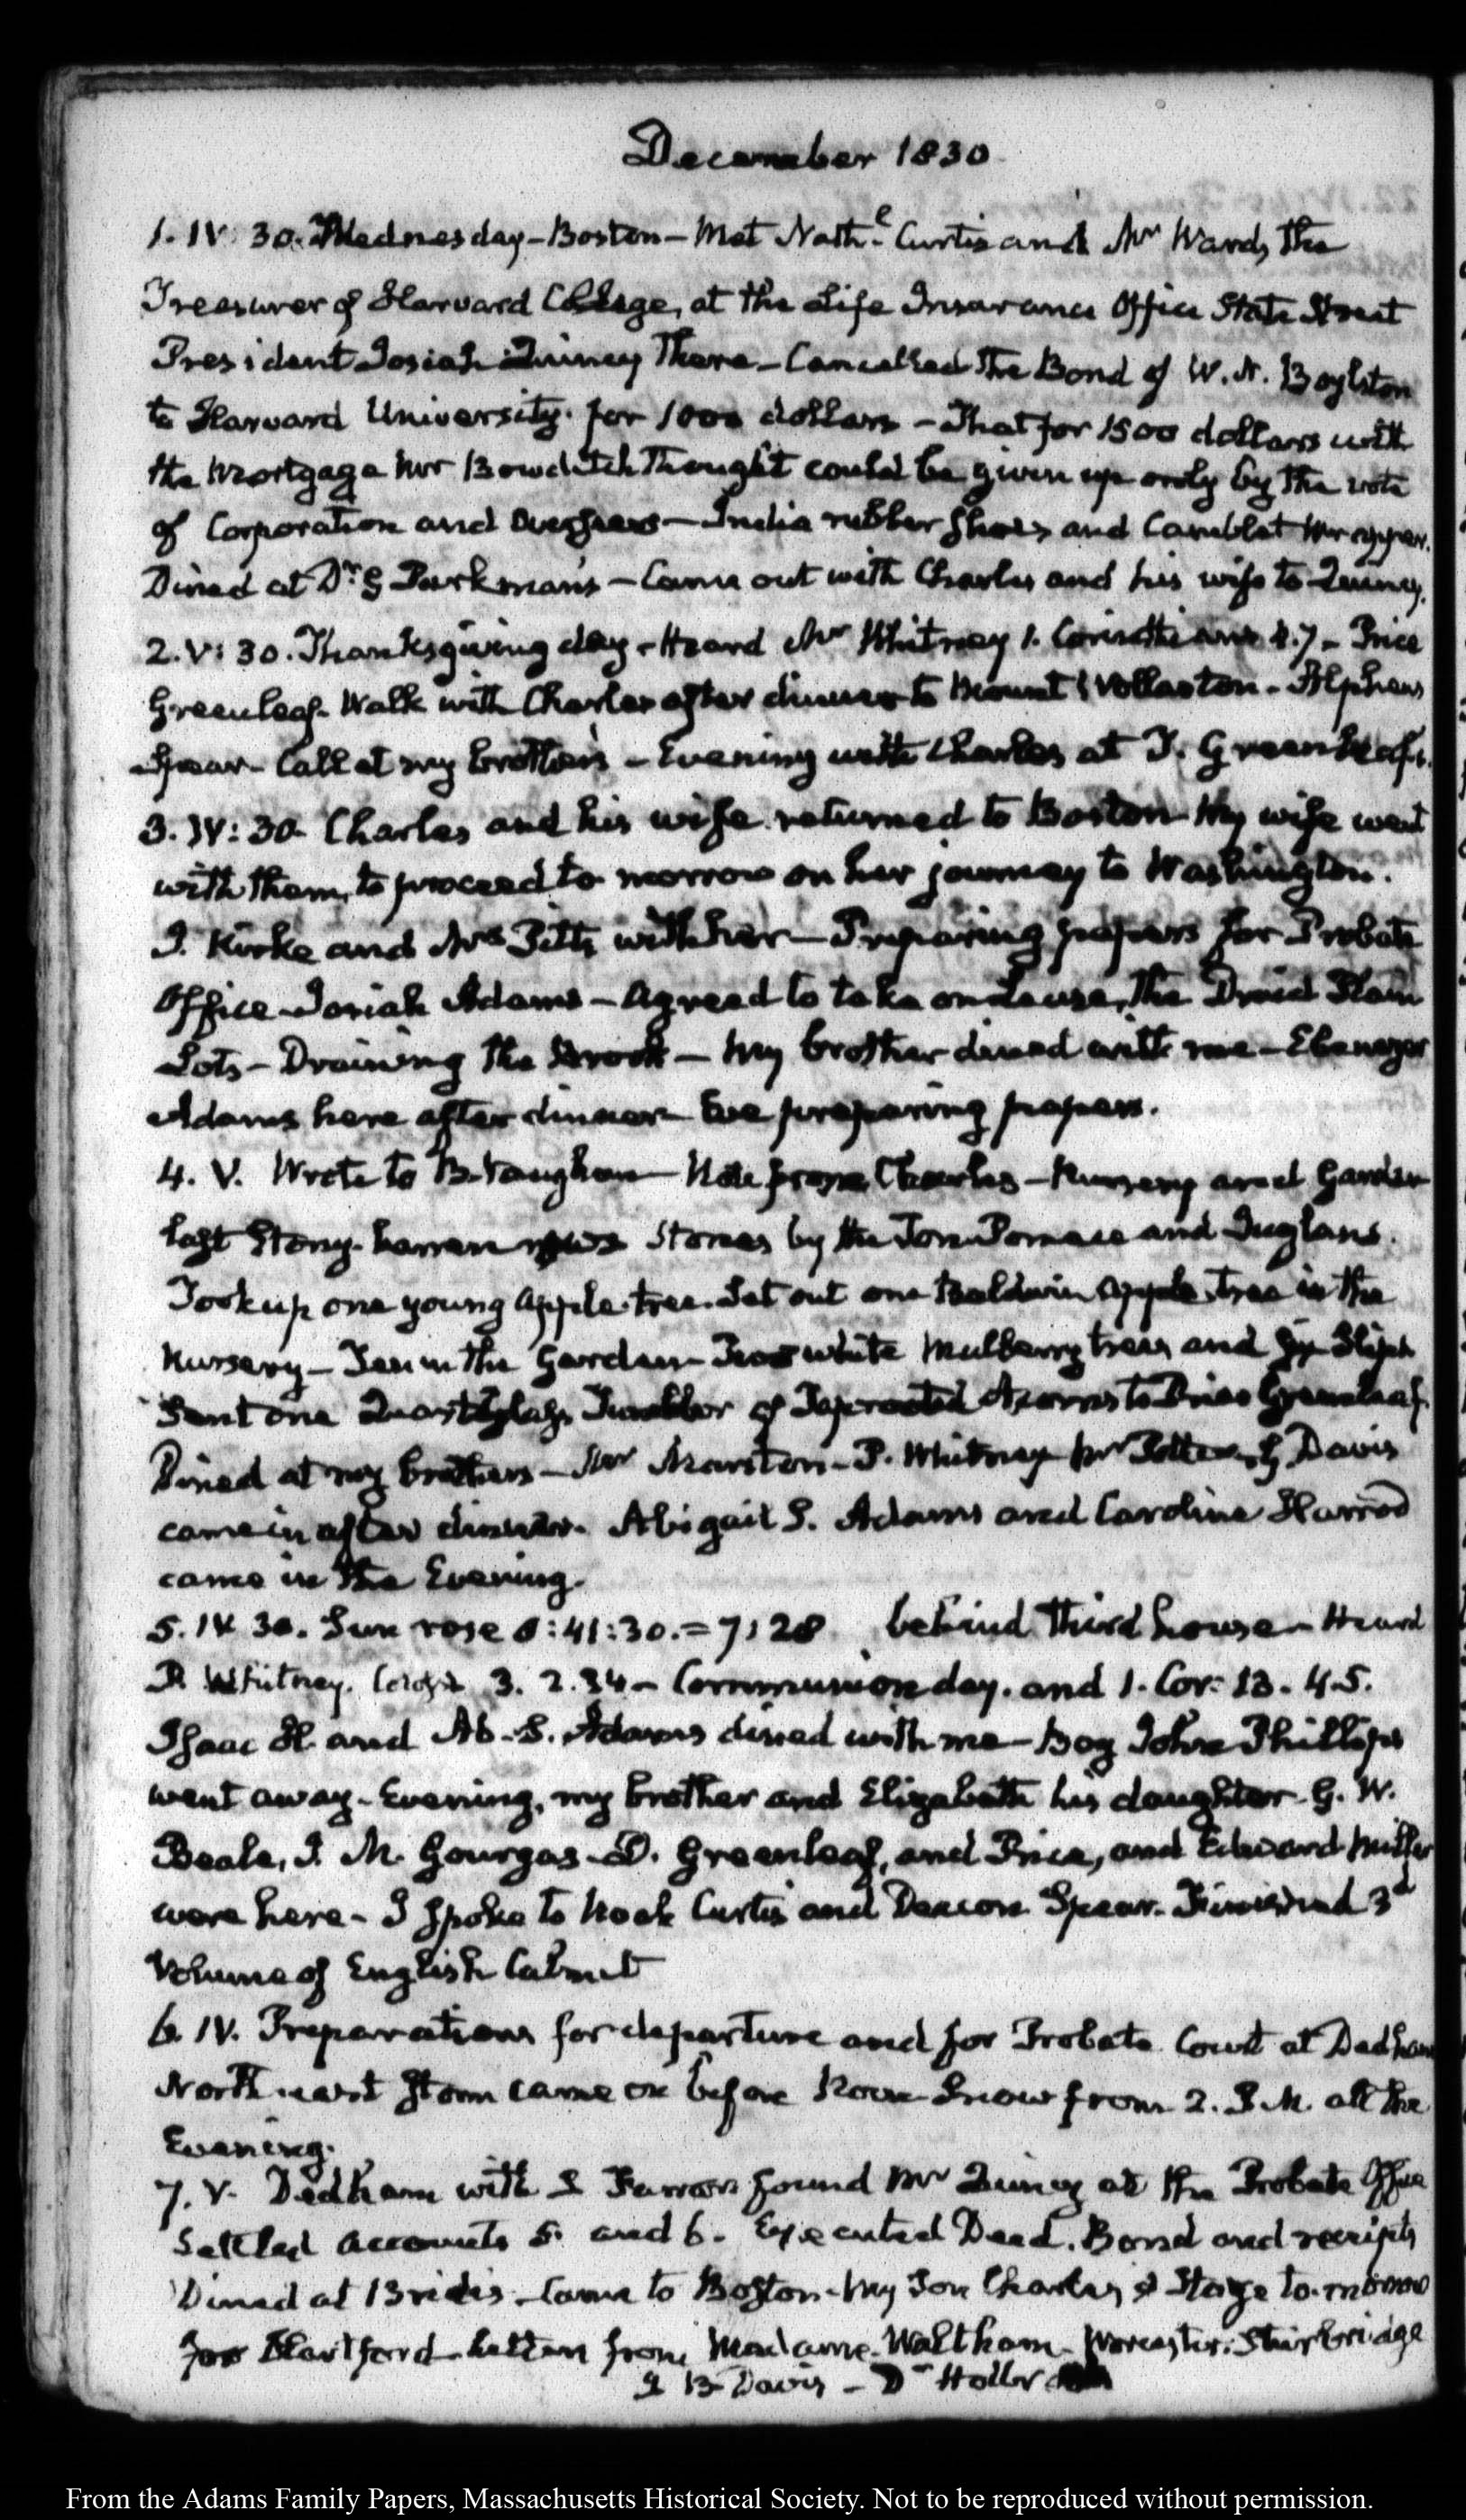 December 1830
1. IV: 30. Wednesday - Boston - Met Nath.l Curtis and Mr Ward, the
Treasurer of Harvard College, at the Life Insurance Office State Street
President Josiah Quincy there - Cancelled the Bond of W. N. Boylston
to Harvard University. for 1000 dollars - That for 1500 dollars with
the Mortgage Mr Bowditch thought could be given up only by the vote
of Corporation and Overseers - India rubber Shoes and Camblet Wrapper.
Dined at Dr. G Parkman's - Came out with Charles and his wife to Quincy.
2. V: 30. Thanksgiving day - Heard Mr Whitney 1. Corinthians 4.7 - Price
Greenleaf. Walk with Charles after dinner to Mount Wollaston - Alpheus
Spear - Call at my brother's - Evening with Charles at T. Greenleaf's.
3. IV: 30 Charles and his wife returned to Boston My wife went
with them, to proceed to morrow on her journey to Washington.
T. Kirke and Mrs with her - Preparing papers for Probate
Office - Josiah Adams - Agreed to take on lease, the
Lots - Draining the Brook - My brother dined with me - Ebenezer
Adams here after dinner Eve preparing papers.
4. V. Wrote to B. Vaughan - Note from Charles - Nursery and Garden
last Stony - barren Stones by the and Juglans.
Took up one young Apple tree. Set out one Baldwin Apple tree in the
Nursery - Ten in the Garden - white Mulberry trees and
Sent one Quart Glass Tumbler of Taprooted Acorns to Price Greenleaf.
Dined at my brothers - Mr Marston - P. Whitney Mr Davis
came in after dinner. Abigail S. Adams and Caroline Harrod
came in the Evening.
5. IV 30. Sun rose :41:30. = 7:28 behind third house - Heard
P. Whitney. 3. 2.34 - Communion day. and 1. Cor: 13. 4.5.
Isaac H. and Ab. S. Adams dined with me - Boy John Phillips
went away - Evening, my brother and Elizabeth his daughter - G. W.
Beale, J. M. Gourgas - D. Greenleaf, and Price, and Edward Miller
were here - I spoke to Noah Curtis and Deacon Spear. Finished 3d
Volume of English Cabinet
6. IV. Preparations for departure and for Probate Court at Dedham
North east Storm came on before Noon - Snow from 2. P.M. all the
Evening.
7. V. Dedham with Farrar found Mr Quincy at the Probate Office
Settled Accounts 5. and 6. Executed Deed. Bond and receipts
Dined at Bride's - Came to Boston - My Son Charles Stage to-morrow
for Hartford - Letter from Madame. Waltham - Worcester. Sturbridge
I B Davis - Dr
From the Adams Family Papers, Massachusetts Historical Society. Not to be reproduced without permission.